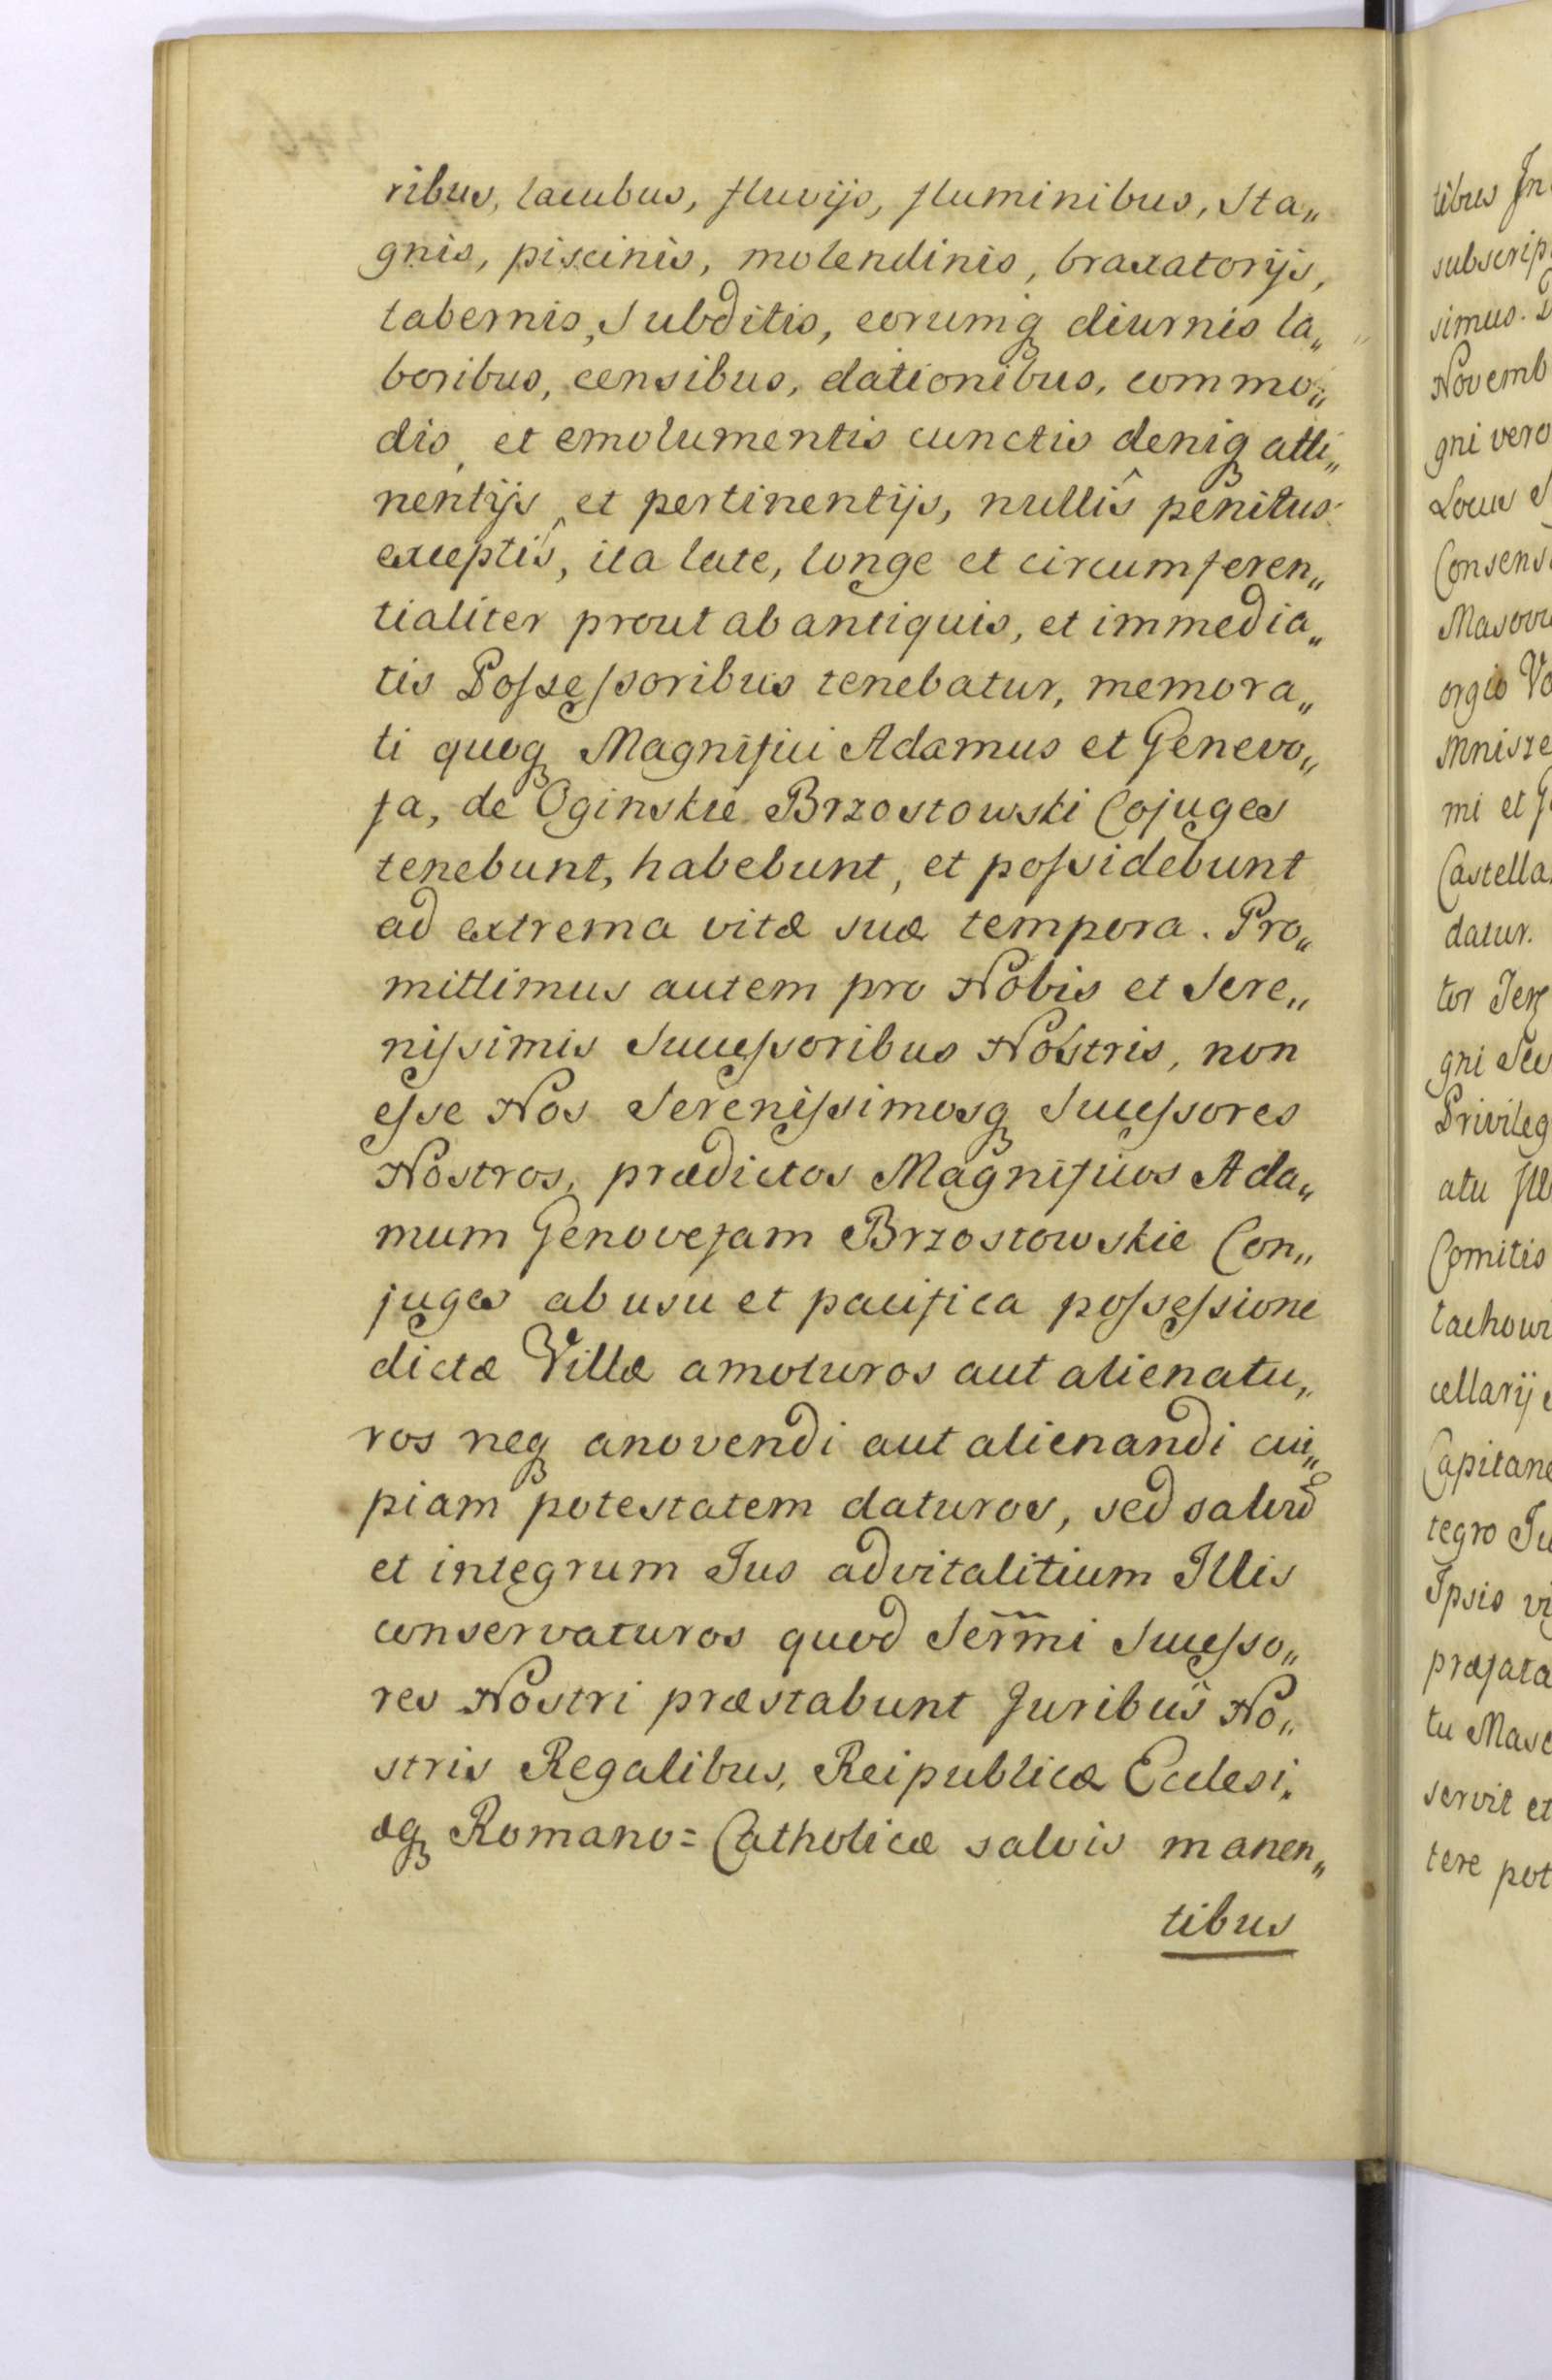 ribus, lacubus, fluvijs, fluminibus, Sta„
gnis, piscinis, molendinis, braxatorijs,
tabernis, Subditis, eorumq diurnis la„
boribus, censibus, dationibus, commo„
dis, et emolumentis cunctis deniq atti„
nentijs et pertinentijs, nullîs penitus
exceptîs, ita late, longe et circumferen„
tialiter prout ab antiquis, et immedia„
tis Possessoribus tenebatur, memora„
ti quoq Magnifici Adamus et Genevo„
fa, de Oginskie Brzostowski Cojuges
tenebunt, habebunt, et possidebunt
ad extrema vitæ suæ tempora. Pro„
mittimus autem pro Nobis et Sere„
nissimis Successoribus Nostris, non
esse Nos Serenissimosq Successores
Nostros, prædictos Magnificos Ada„
mum Genovefam Brzostowskie Con„
juges ab usu et pacifica possessione
dictæ Villæ amoturos aut alienatu„
ros neq amovendi aut alienandi cui„
piam potestatem daturos, sed salvũ
et integrum Jus advitalitium Illis
conservaturos quod Ser̃m̃i Successo„
res Nostri præstabunt Juribus No„
stris Regalibus, Reipublicæ Ecclesi„
æq Romano=Catholicæ salvis manen„
tibus
tibus In
subscrip
simus. D
Novemb
gni vero
Locus S
Consens
Masovi
orgio Va
Mnisze
mi et G
Castella
datur.
tor Ter
gni Se
Privileg
atu Ill
Comitis
tachow
cellarij
Capitane
tegro Ju
Ipsis vi
præfata
tu Maso
servit et
tere pot